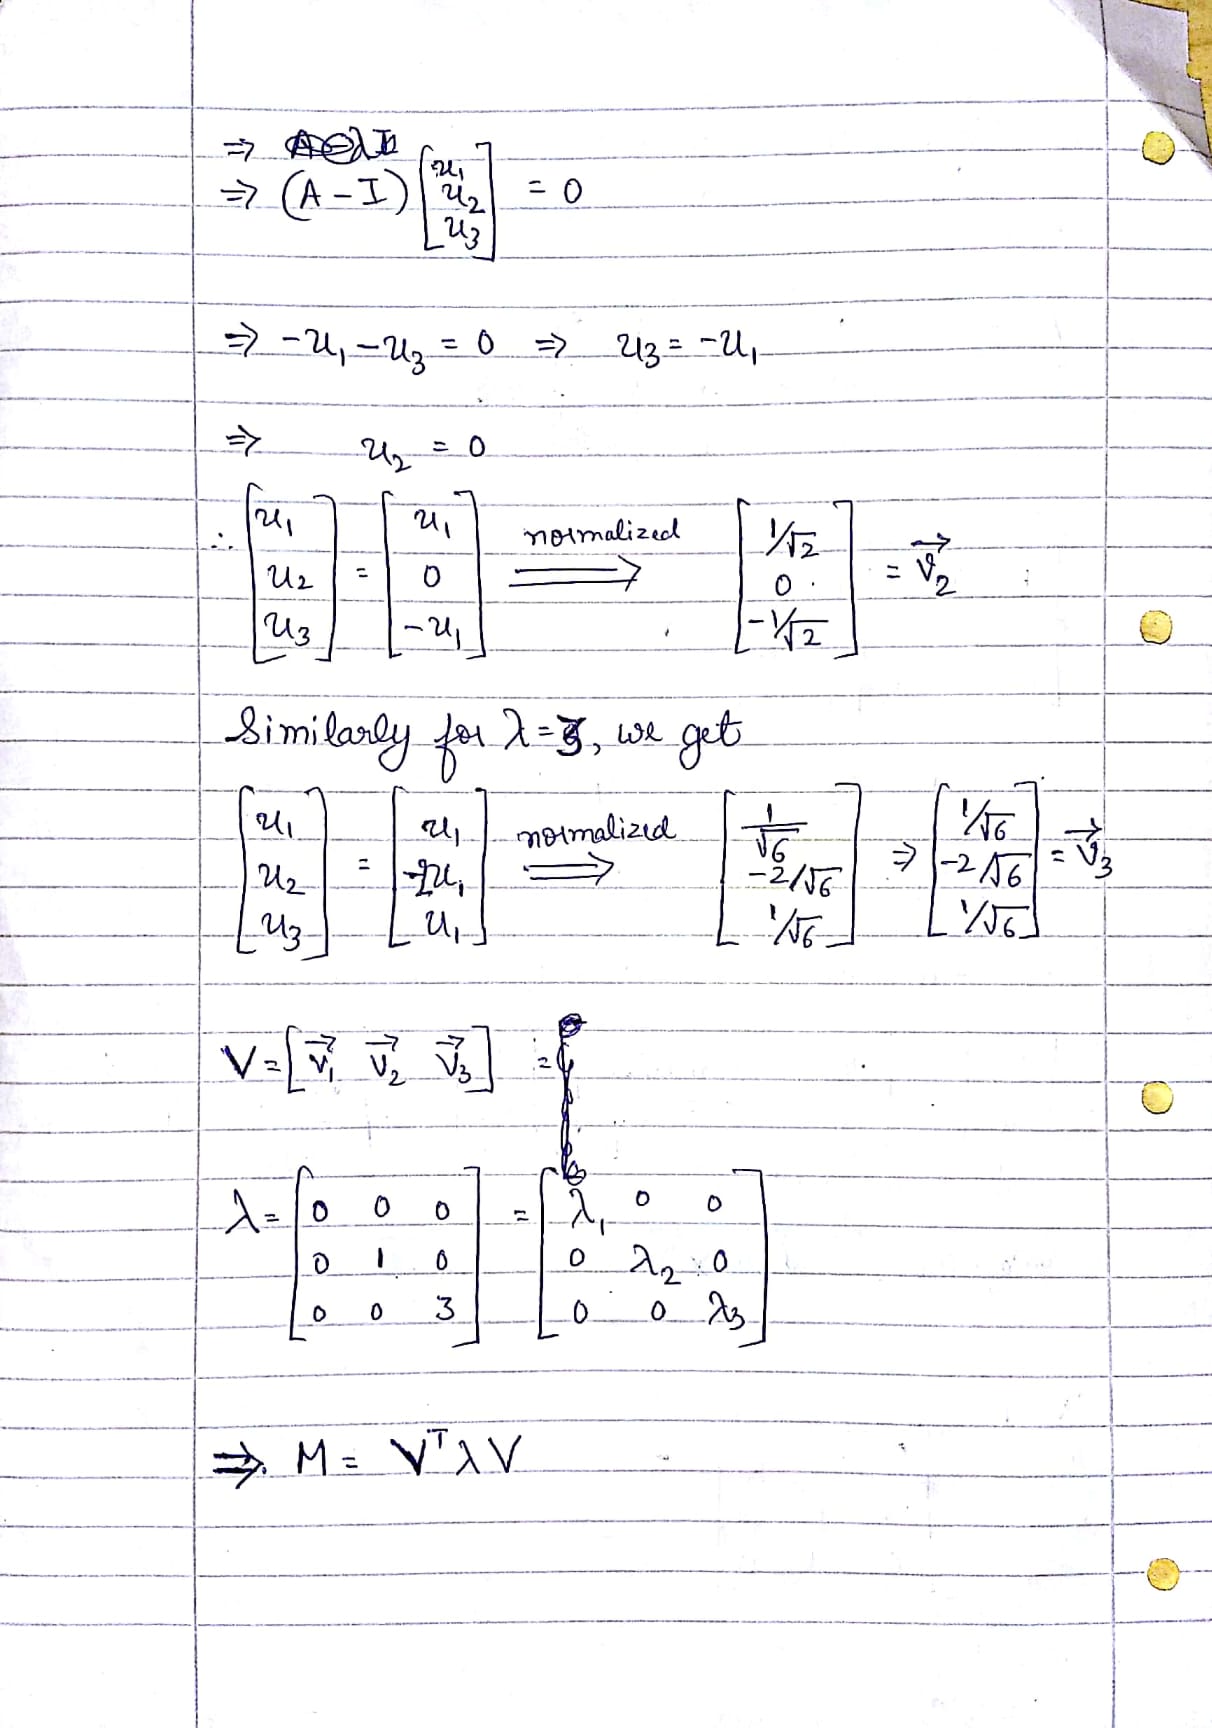 ⇒
⇒ (A - I) [u₁ u₂ u₃] = 0
⇒ -u₁ - u₃ = 0 ⇒ u₃ = -u₁
⇒ u₂ = 0
∴ [u₁ u₂ u₃] = [u₁ 0 -u₁] normalized ⟹ [1/√2 0 -1/√2] = v⃗₂
Similarly for λ=3, we get
[u₁ u₂ u₃] = [u₁ -2u₁ u₁] normalized ⟹ [1/√6 -2/√6 1/√6] ⇒ [1/√6 -2/√6 1/√6] = v⃗₃
V = [v⃗₁ v⃗₂ v⃗₃] =
λ = [0 0 0
0 1 0
0 0 3] = [λ₁ 0 0
0 λ₂ 0
0 0 λ₃]
⇒ M = VᵀλV